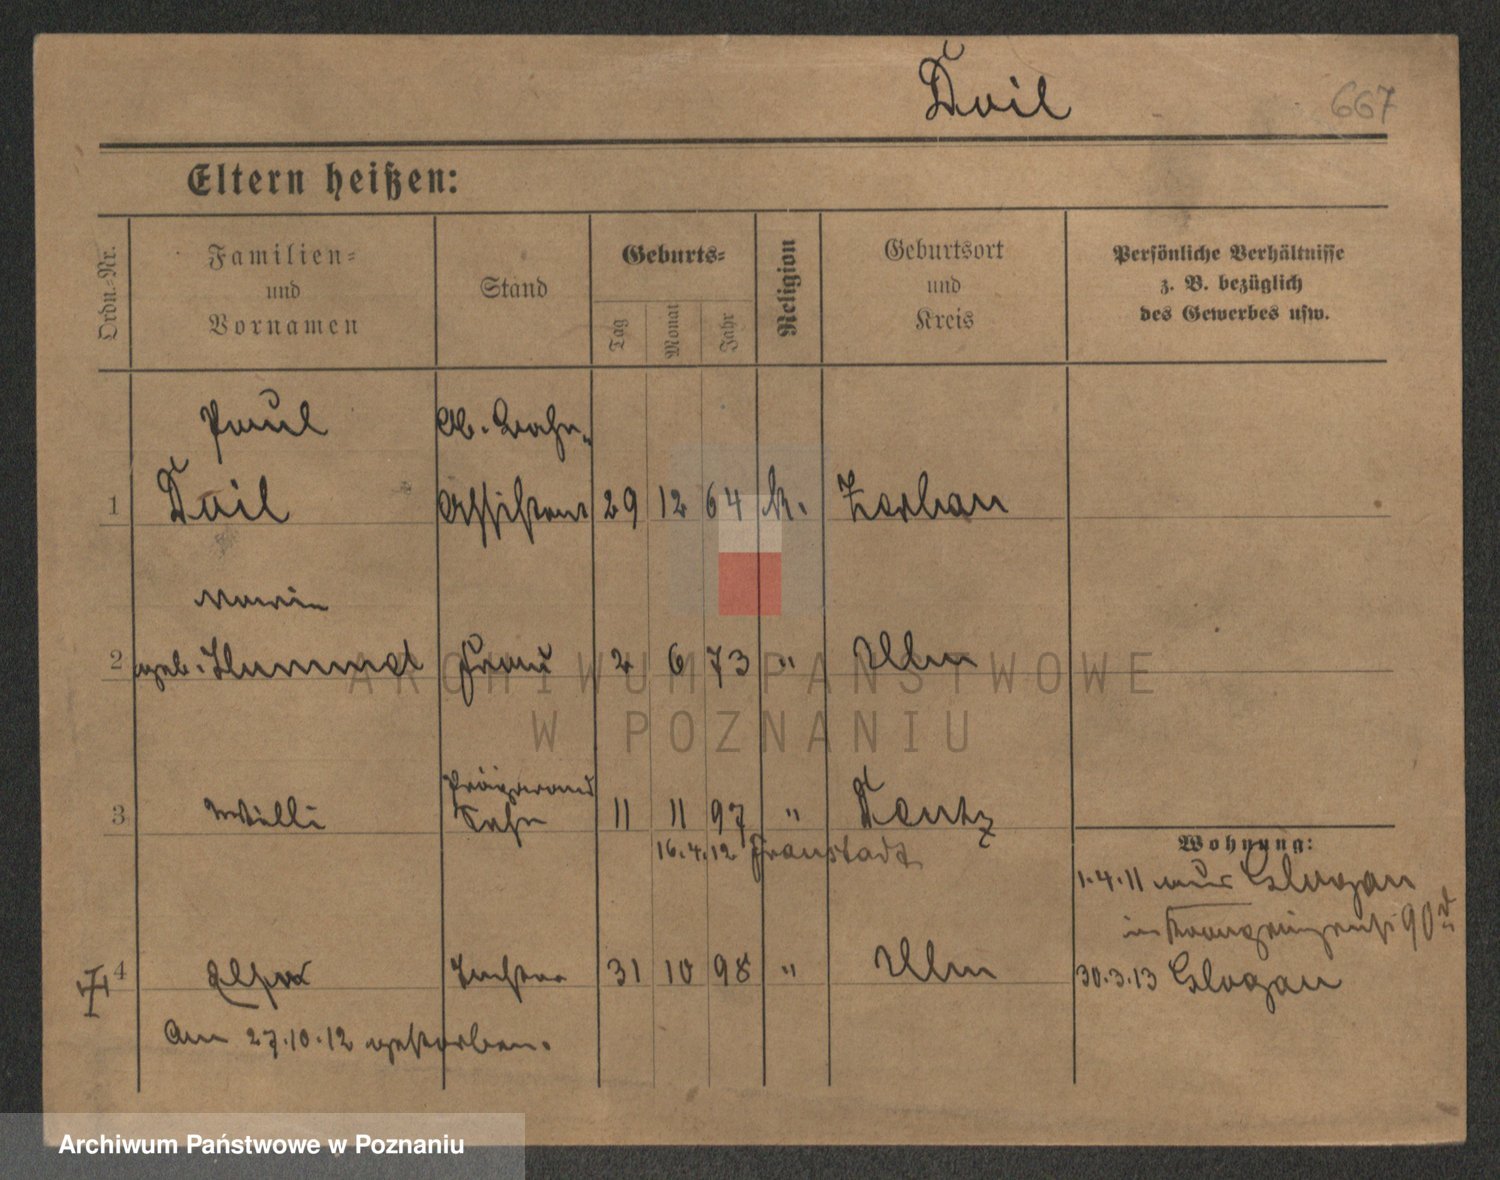 Doil
667
Eltern heißen:
Ordn.-Nr.
Familien-
und
Vornamen
Stand
Geburts-
Tag
Monat
Jahr
Religion
Geburtsort
und
Kreis
Persönliche Verhältnisse
z. B. bezüglich
des Gewerbes usw.
Paul
Ob. Bahn-
1 Doil Assistent 29 12 64 k.
Maria
2 geb. Frau 2 6 73 " Ulm
3 Willi Sohn 11 11 97 "
16.4.12 Fraustadt
Wohnung:
1.4.11 aus Glogau
90
4 Elsa Tochter 31 10 98 " Ulm
30.3.13 Glogau
Am 27.10.12 gestorben.
ARCHIWUM PAŃSTWOWE
W POZNANIU
Archiwum Państwowe w Poznaniu